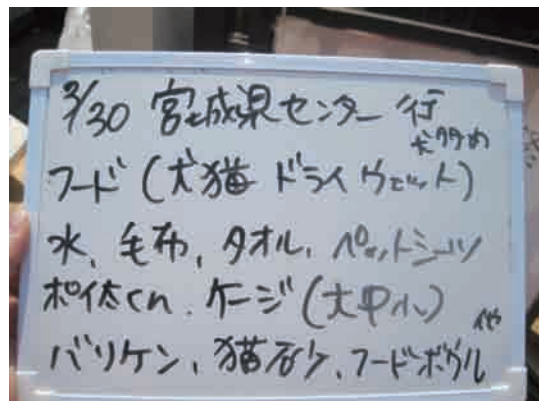 3/30 宮城県センター行
犬多め
フード(犬猫 ドライ ウェット)
水、毛布、タオル、ペットシーツ
ポイ太くん、ケージ(大中小)
バリケン、猫砂、フードボウル